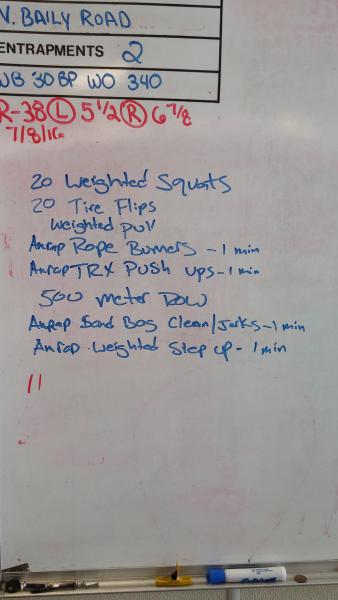 N. BAILY ROAD
ENTRAPMENTS 2
WB 30 BP WO 340
R-38 L 5 1/2 R 6 7/8
7/8/16
20 Weighted Squats
20 Tire Flips
Weighted Pull
Amrap Rope Burners - 1 min
Amrap TRX PUSH UPS - 1 min
500 meter Row
Amrap Sand Bag Clean/Jerks - 1 min
Amrap Weighted Step up - 1 min
11